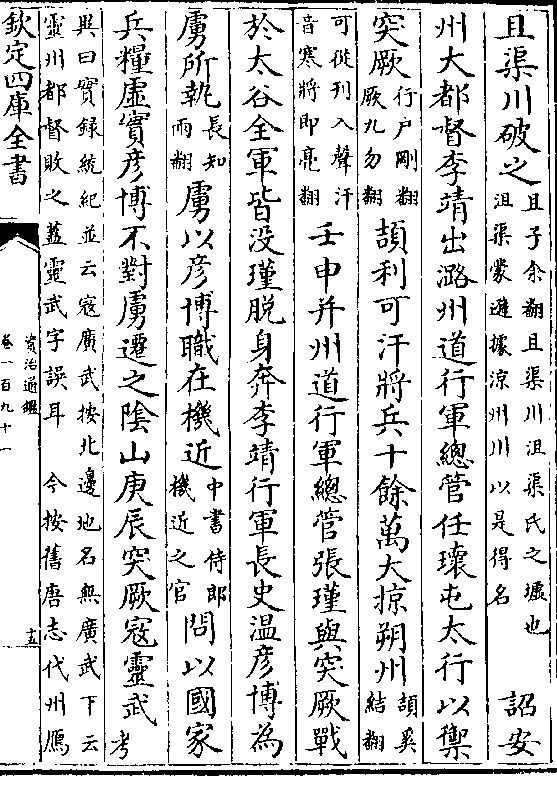 且渠川破之且子余翻且渠川沮渠氏之壚也沮渠蒙遜據涼州川以是得名詔安
州大都督李靖出潞州道行軍總管任瓌屯太行以禦
突厥行戶剛翻厥九勿翻頡利可汗將兵十餘萬大掠朔州頡奚結翻
可從刊入聲汗音寒將即亮翻壬申并州道行軍總管張瑾與突厥戰
於太谷全軍皆没瑾脱身奔李靖行軍長史温彦博為
虜所執長知兩翻虜以彦博職在機近中書侍郎機近之官問以國家
兵糧虚實彦博不對虜遷之隂山庚辰突厥寇靈武考
異曰實録統紀並云寇廣武按北邊地名無廣武下云靈州都督敗之葢靈武字誤耳　今按舊唐志代州鴈
欽定四庫全書
資治通鑑
卷一百九十一
十五